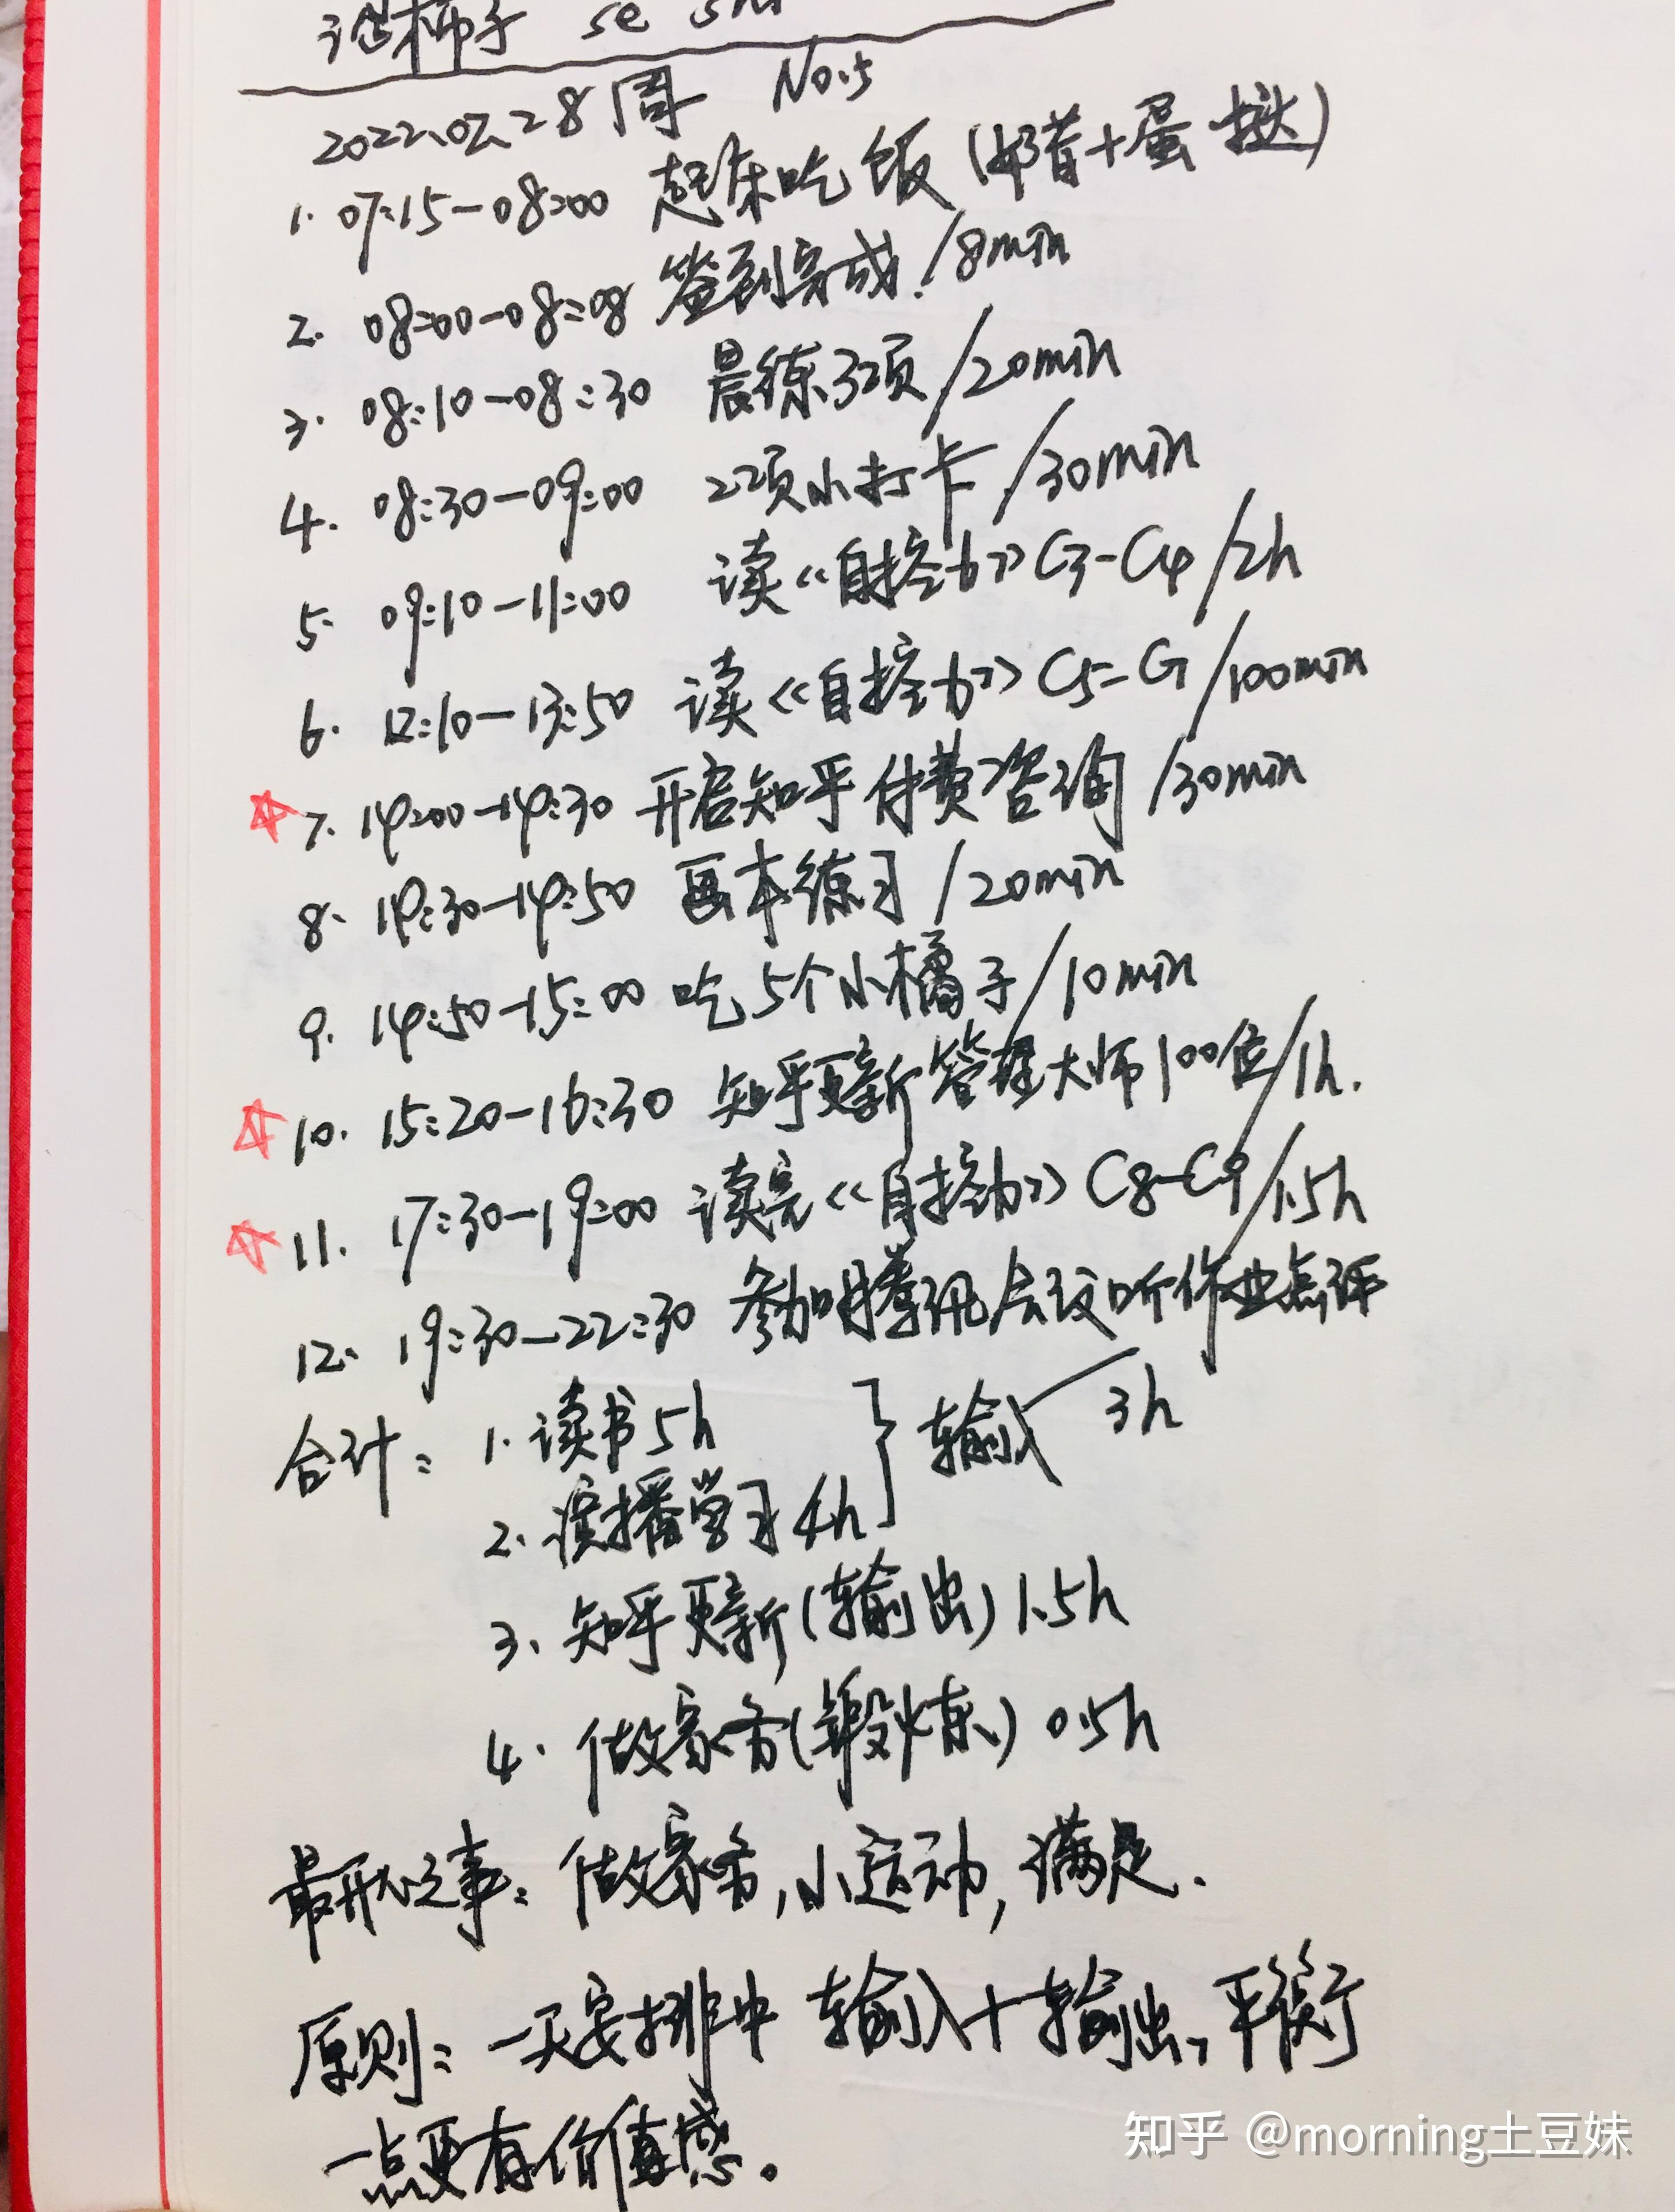 涩柿子 se shi
2022.02.28 周一 No.5
1. 07:15-08:00 起床吃饭(奶昔+蛋挞)
2. 08:00-08:08 签到完成!/8min
3. 08:10-08:30 晨练3项/20min
4. 08:30-09:00 2项小打卡/30min
5. 09:10-11:00 读《自控力》C3-C4/2h
6. 12:10-13:50 读《自控力》C5-C7/100min
☆7. 14:00-14:30 开启知乎付费咨询/30min
8. 14:30-14:50 画本练习/20min
9. 14:50-15:00 吃5个小橘子/10min
☆10. 15:20-16:30 知乎更新管理大师100位/1h.
☆11. 17:30-19:00 读完《自控力》C8-C9/1.5h
12. 19:30-22:30 参加腾讯会议听作业点评
3h
合计: 1. 读书5h
2. 演播学习4h } 输入
3. 知乎更新(输出)1.5h
4. 做家务(锻炼)0.5h
最开心之事:做家务,小运动,满足.
原则:一天安排中 输入+输出,平衡
一点更有价值感。
知乎 @morning土豆妹